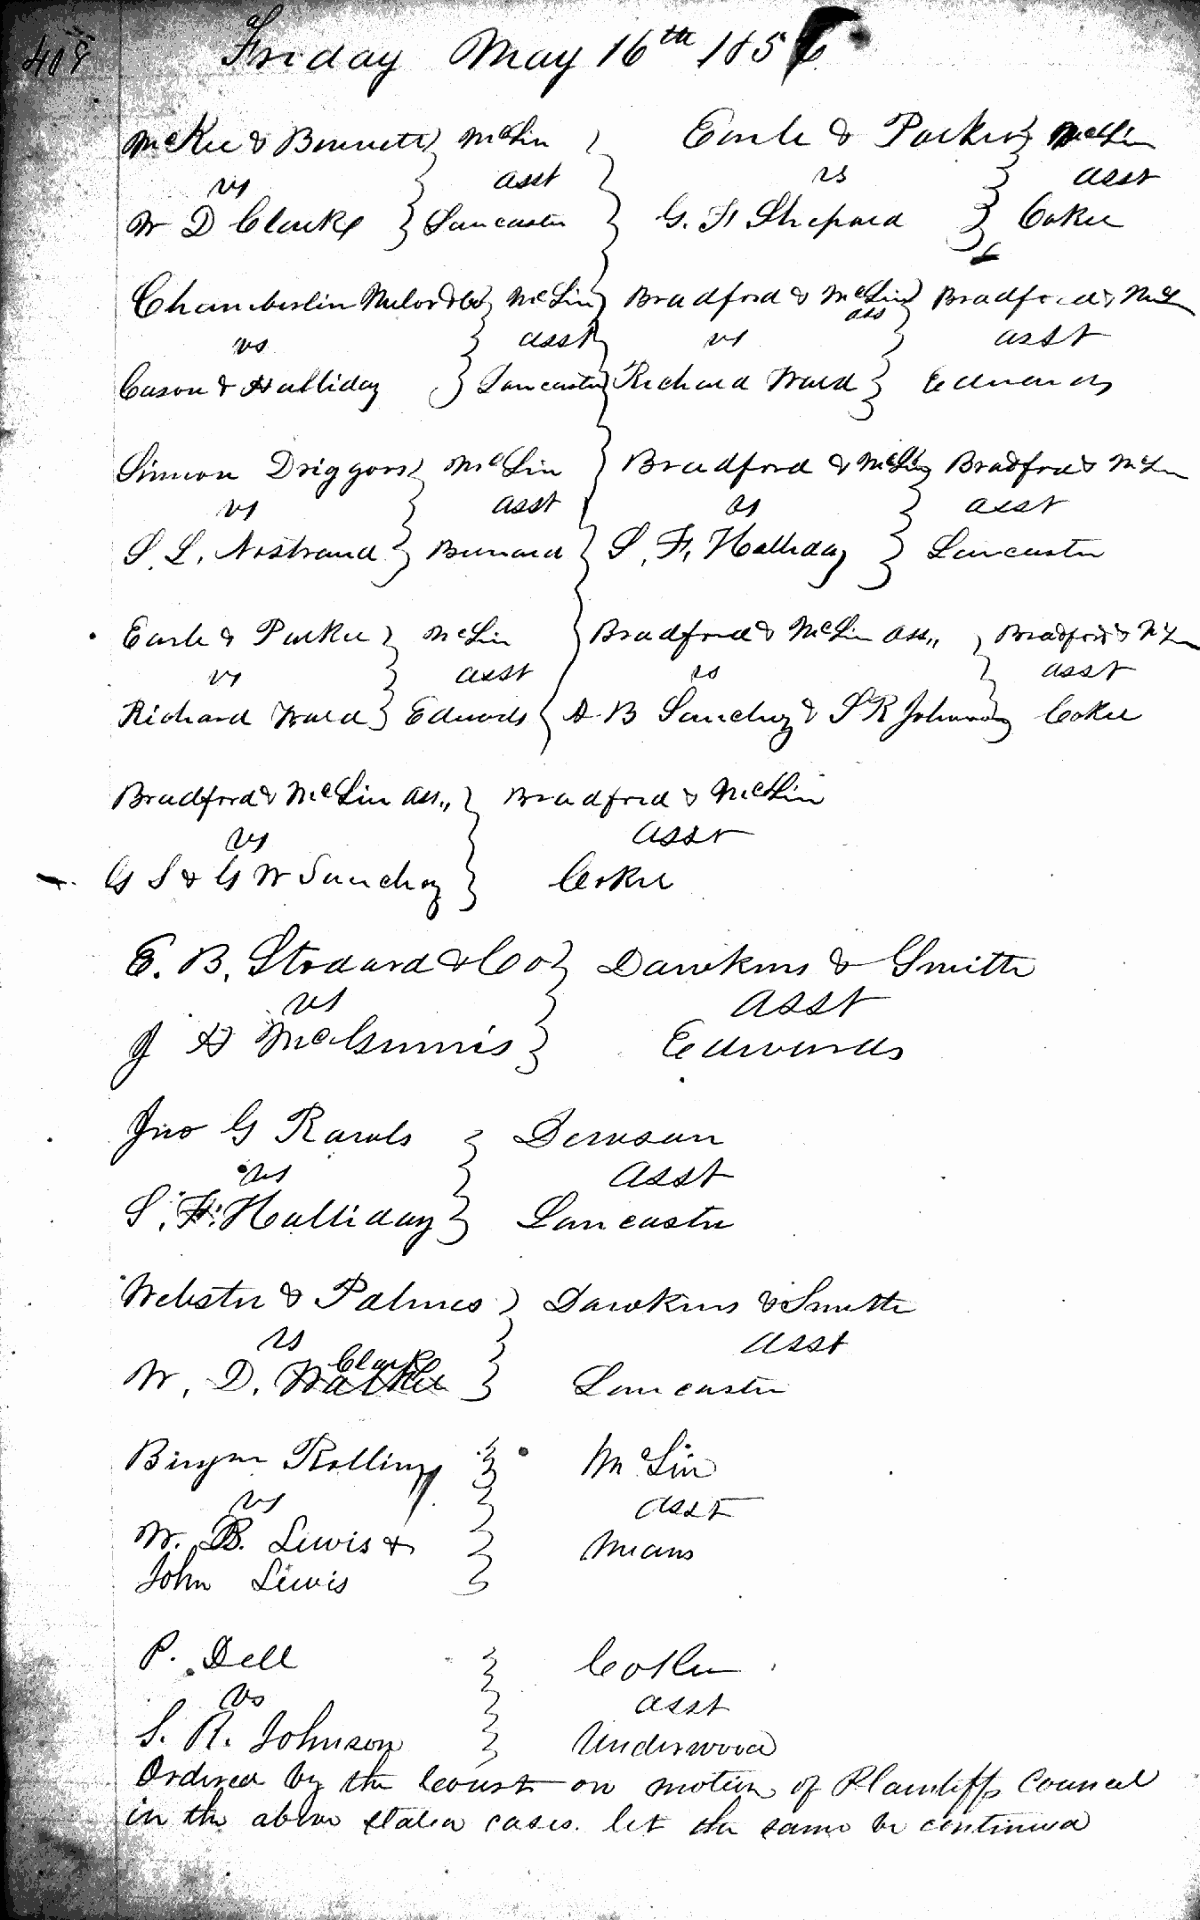 408
Friday May 16th 1856
McKee & Bennett } McLin
vs } asst
W D Clarke } Lancaster
Earle & Parker } McLin
vs } asst
G. F Shepard } Coker
Chamberlin & Co } McLin
vs } asst
Cason & Halliday } Lancaster
Bradford & McLin ass } Bradford & McL
vs } asst
Richard Ward } Edwards
Simeon Driggors } McLin
vs } asst
S. L. Nostrand } Bernard
Bradford & McLin } Bradford & McLin
vs } asst
S. F. Halliday } Lancaster
Earle & Parker } McLin
vs } asst
Richard Ward } Edwards
Bradford & McLin ass,, } Bradford & McLin
vs } asst
A. B Sanchez & S R Johnson } Coker
Bradford & McLin ass,, } Bradford & McLin
vs } asst
G S & G W Sanchez } Coker
E. B. Stodard & Co } Dawkins & Smith
vs } asst
J H McGinnis } Edwards
Jno G Rawls } Denison
vs } asst
S. F. Halliday } Lancaster
Webster & Palmes } Dawkins & Smith
vs } asst
W. D. Walker Clarke } Lancaster
Rollins } McLin
vs } asst
W. B. Lewis & } Means
John Lewis
P. Dell } Coker
vs } asst
S. R. Johnson } Underwood
Ordered by the Court on motion of Plaintiffs Councel
in the above stated cases let the same be continued